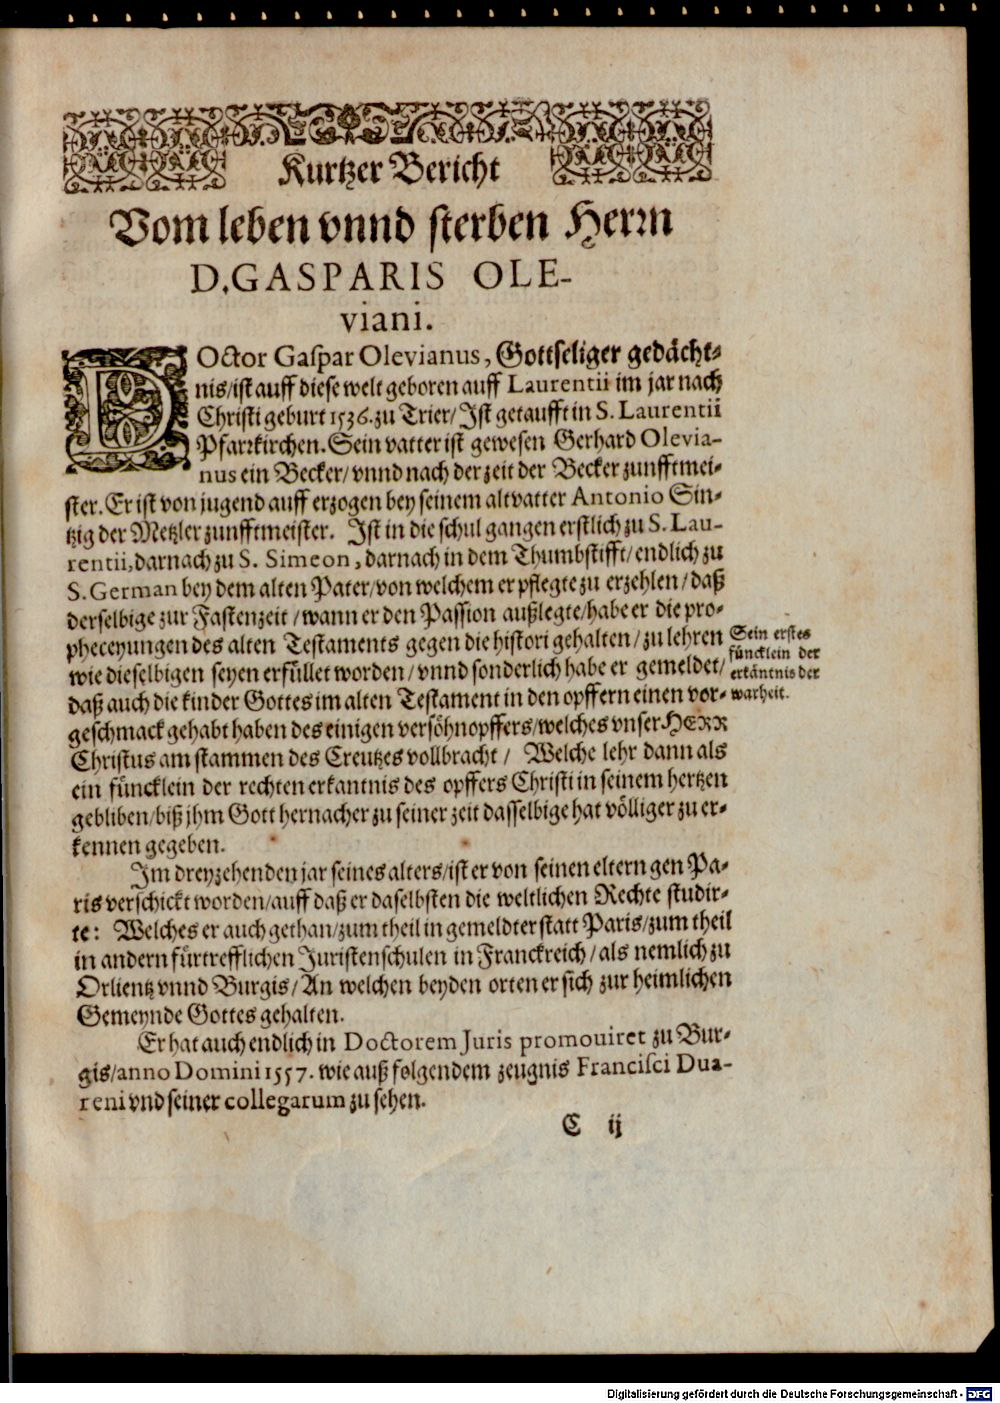 Kurtzer Bericht
Vom leben vnnd sterben Herrn
D. GASPARIS OLE-
viani.
DOctor Gaspar Olevianus, Gottseliger gedächt-
nis/ ist auff diese welt geboren auff Laurentii im jar nach
Christi geburt 1536. zu Trier/ Ist getaufft in S. Laurentii
Pfarrkirchen. Sein vatter ist gewesen Gerhard Olevia-
nus ein Becker/ vnnd nach der zeit der Becker zunfftmei-
ster. Er ist von jugend auff erzogen bey seinem altvatter Antonio Sin-
tzig der Metzler zunfftmeister. Ist in die schul gangen erstlich zu S. Lau-
rentii, darnach zu S. Simeon, darnach in dem Thumbstifft/ endlich zu
S. German bey dem alten Pater/ von welchem er pflegte zu erzehlen/ daß
derselbige zur Fastenzeit/ wann er den Passion außlegte/ habe er die pro-
pheceyungen des alten Testaments gegen die histori gehalten/ zu lehren
wie dieselbigen seyen erfüllet worden/ vnnd sonderlich habe er gemeldet/
daß auch die kinder Gottes im alten Testament in den opffern einen vor-
geschmack gehabt haben des einigen versöhnopffers/ welches vnser HERR
Christus am stammen des Creutzes vollbracht/ Welche lehr dann als
ein füncklein der rechten erkantnis des opffers Christi in seinem hertzen
gebliben/ biß jhm Gott hernacher zu seiner zeit dasselbige hat völliger zu er-
kennen gegeben.
Sein erstes
füncklein der
erkäntnis der
warheit.
Im dreyzehenden jar seines alters/ ist er von seinen eltern gen Pa-
ris verschickt worden/ auff daß er daselbsten die weltlichen Rechte studir-
te: Welches er auch gethan/ zum theil in gemeldter statt Paris/ zum theil
in andern fürtrefflichen Juristenschulen in Franckreich/ als nemlich zu
Orlientz vnnd Burgis/ An welchen beyden orten er sich zur heimlichen
Gemeynde Gottes gehalten.
Er hat auch endlich in Doctorem Juris promoviret zu Bur-
gis/ anno Domini 1557. wie auß folgendem zeugnis Francisci Dua-
reni vnd seiner collegarum zu sehen.
C ij
Digitalisierung gefördert durch die Deutsche Forschungsgemeinschaft - DFG